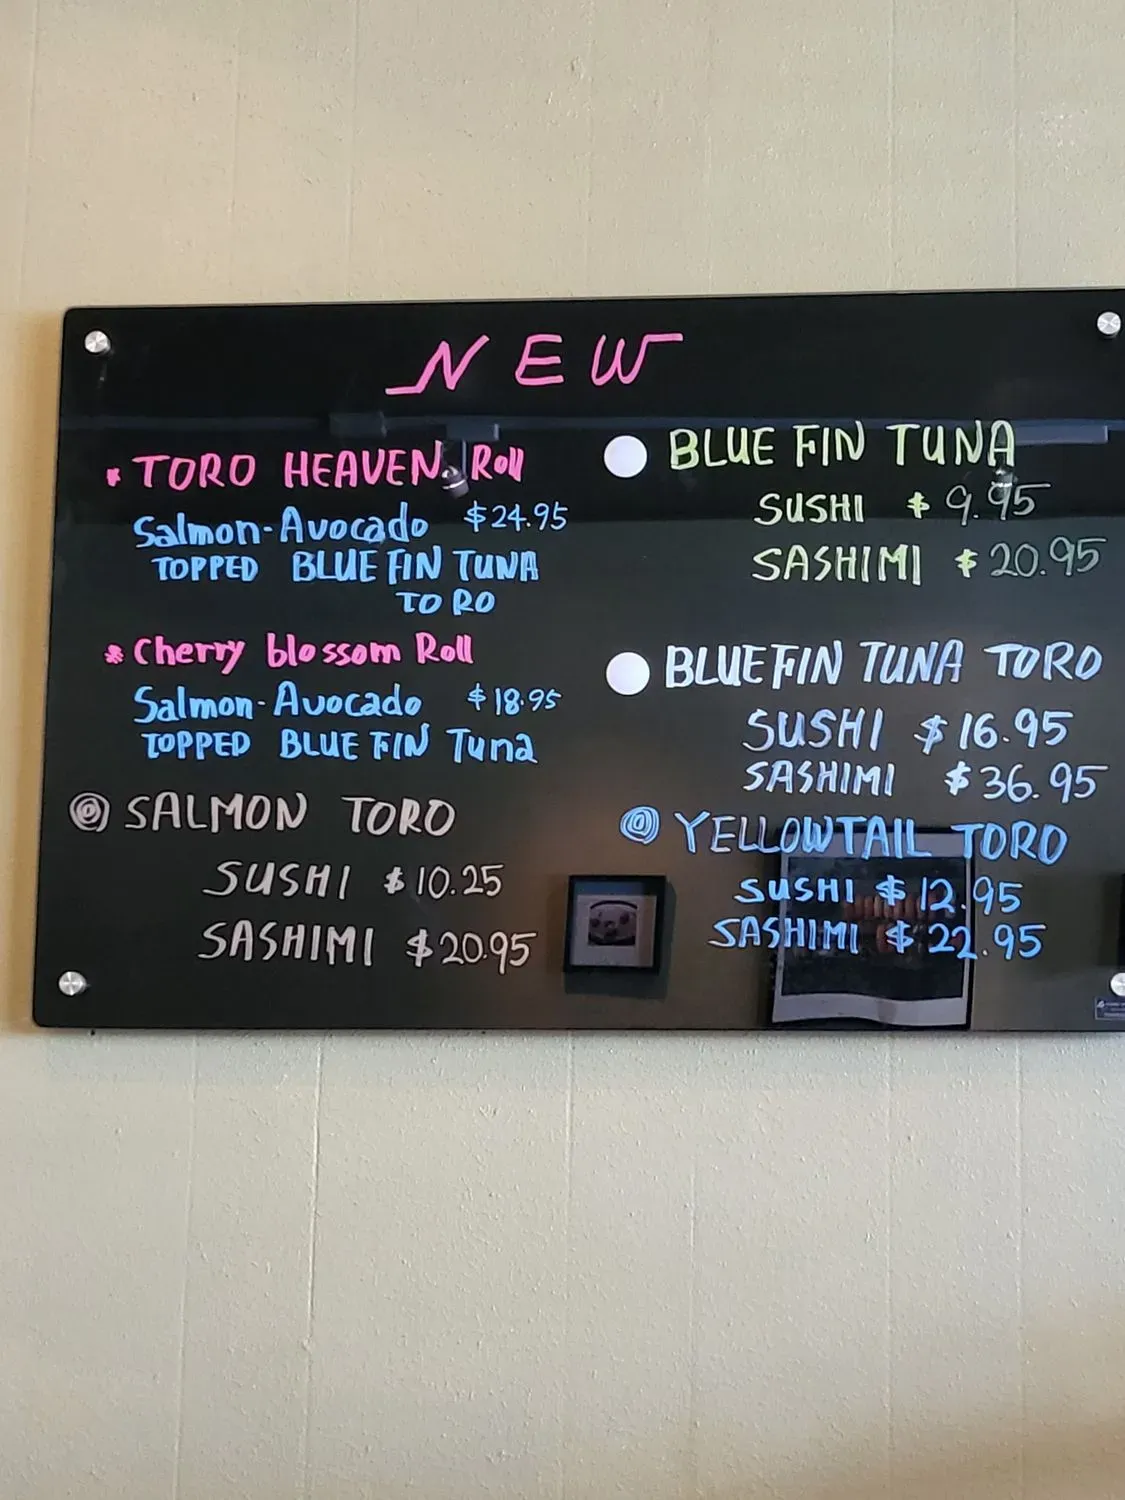 NEW
* TORO HEAVEN Roll
Salmon-Avocado $24.95
TOPPED BLUE FIN TUNA
TORO
* Cherry blossom Roll
Salmon-Avocado $18.95
TOPPED BLUE FIN Tuna
SALMON TORO
SUSHI $10.25
SASHIMI $20.95
BLUE FIN TUNA
SUSHI $9.95
SASHIMI $20.95
BLUE FIN TUNA TORO
SUSHI $16.95
SASHIMI $36.95
YELLOWTAIL TORO
SUSHI $12.95
SASHIMI $22.95